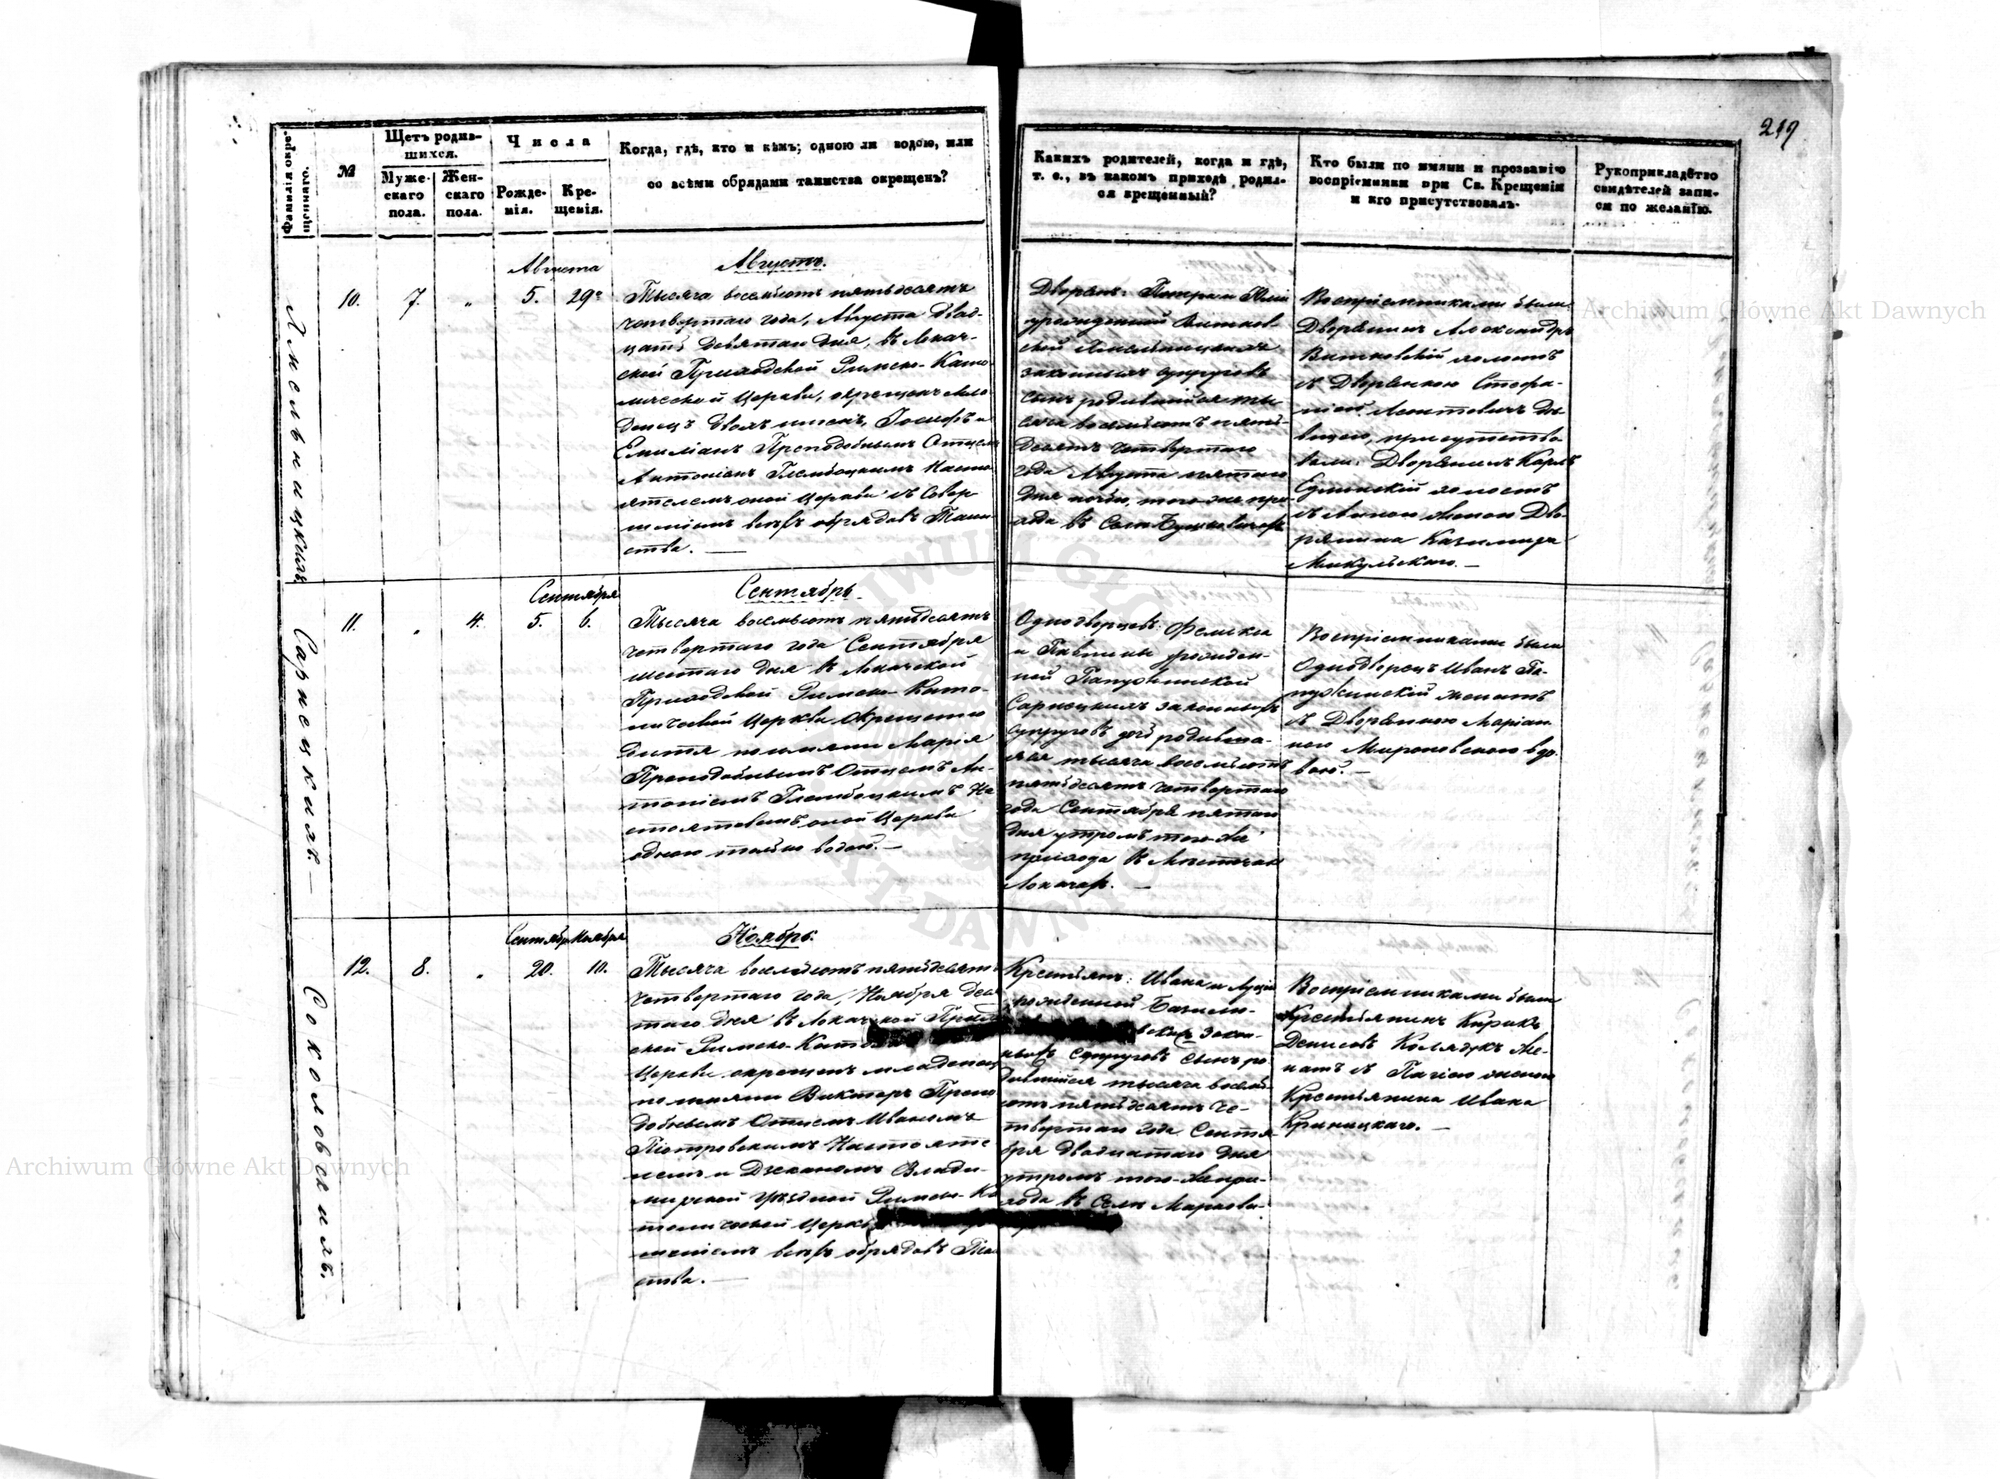 219
Фамилія окре-
щаннаго.
№
Щетъ родив-
шихся.
Муже-
скаго
пола.
Жен-
скаго
пола.
Числа
Рожде-
нія.
Кре-
щенія.
Когда, гдѣ, кто и кѣмъ; одною ли водою, или
со всѣми обрядами таинства окрещенъ?
Какихъ родителей, когда и гдѣ,
т. е., въ какомъ приходѣ родил-
ся крещенный?
Кто были по имяни и прозванію
воспріемники при Св. Крещеніи
и кто присутствовалъ.
Рукоприкладство
свидѣтелей запи-
си по желанію.
Августа
10. 7. „ 5. 29.
Августъ.
Тысяча восемьсотъ пятьдесятъ
четвертаго года, Августа двад-
цать девятаго дня, въ Локач-
ской Приходской Римско-Като-
лической Церкви, окрещенъ мла-
денецъ двомъ имянъ, Іосифъ и
Емиліанъ Преподобнымъ Отцемъ
Антоніемъ Глембоцкимъ Насто-
ятелемъ оной Церкви съ Совер-
шеніемъ всѣхъ обрядовъ Таин-
ства. —
Дворянъ: Петра и Юліи
урожденной Витков-
ской
законныхъ супруговъ
сынъ родившійся ты-
сяча восемьсотъ пять-
десятъ четвертаго
года Августа пятаго
дня ночью, того же при-
хода въ Селѣ
Воспріемниками были
Дворянинъ Александръ
Витковскій холостъ
съ Дворянкою Стефа-
ніей Леонтовичъ дѣ-
вицею, присутство-
вали: Дворянинъ Карлъ
холостъ
съ Анною женою Дво-
рянина Казимира
Микульскаго. —
Сентября
11. „ 4. 5. 6.
Сарнецкихъ. —
Сентябрь.
Тысяча восемьсотъ пятьдесятъ
четвертаго года Сентября
шестаго дня въ Локачской
Приходской Римско-Като-
лической Церкви окрещено
дитя по имяни Марія
Преподобнымъ Отцемъ Ан-
тоніемъ Глембоцкимъ На-
стоятелемъ оной Церкви
одною только водою. —
Однодворцевъ: Феликса
и Павлины урожден-
ной Папужинской
Сарнецкихъ законныхъ
супруговъ дочь родивша-
яся тысяча восемьсотъ
пятьдесятъ четвертаго
года Сентября пятаго
дня утромъ того-же
прихода въ Мѣстечкѣ
Локачахъ. —
Воспріемниками были
Однодворецъ Иванъ Па-
пужинскій женатъ
съ Дворянкою Маріан-
ною Мироновскою вдо-
вою. —
Сентября Ноября
12. 8. „ 20. 10.
Соколовскихъ.
Ноябрь.
Тысяча восемьсотъ пятьдесятъ
четвертаго года, Ноября деся-
таго дня въ Локачской Приход-
ской Римско-Като
Церкви окрещенъ младенецъ
по имяни Викторъ Препо-
добнымъ Отцемъ Иваномъ
Піотровскимъ Настояте-
лемъ и Деканомъ Влади-
мирской уѣздной Римско-Ка-
толической Церкви
шеніемъ всѣхъ обрядовъ Таин-
ства. —
Крестьянъ: Ивана и Луціи
урожденной Базилю-
вскихъ закон-
ныхъ Супруговъ Сынъ ро-
дившійся тысяча восемь-
сотъ пятьдесятъ че-
твертаго года Сентя-
бря двадцатаго дня
утромъ того-же при-
хода въ Селѣ Маркови-
Воспріемниками были
Крестьянинъ Кирикъ
Денисовъ Колядукъ же-
натъ съ женою
Крестьянина Ивана
Криницкаго. —
Archiwum Główne Akt Dawnych
Archiwum Główne Akt Dawnych